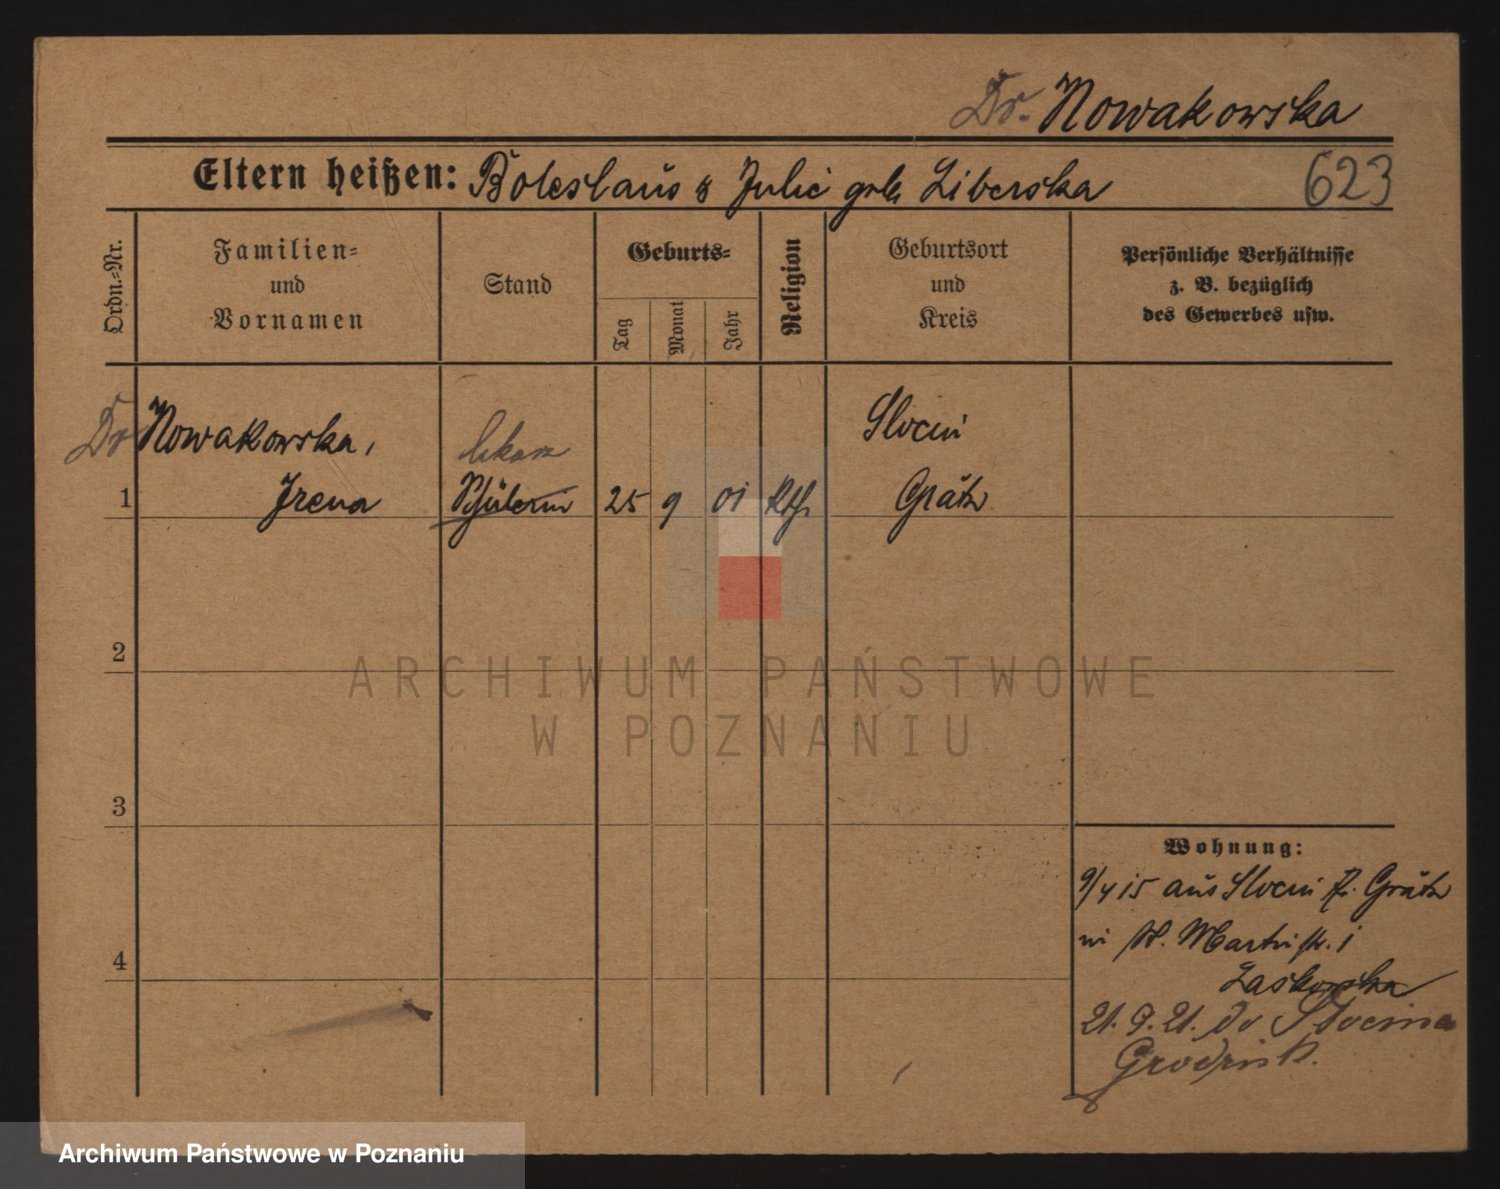 Dr. Nowakowska
Eltern heißen: Boleslaus & Julie geb. Liberska 623
Ordn.-Nr.
Familien-
und
Vornamen
Stand
Geburts-
Tag
Monat
Jahr
Religion
Geburtsort
und
Kreis
Persönliche Verhältnisse
z. B. bezüglich
des Gewerbes usw.
Dr Nowakowska, lekarz Slocin
1 Irena Schülerin 25 9 01 Kth. Grätz
2
3
4
Wohnung:
9/4 15 aus Slocin Kr. Grätz
in St. Martinstr. 1
Laskowska
21.9.21. do Słocina
Grodzisk.
ARCHIWUM PAŃSTWOWE
W POZNANIU
Archiwum Państwowe w Poznaniu